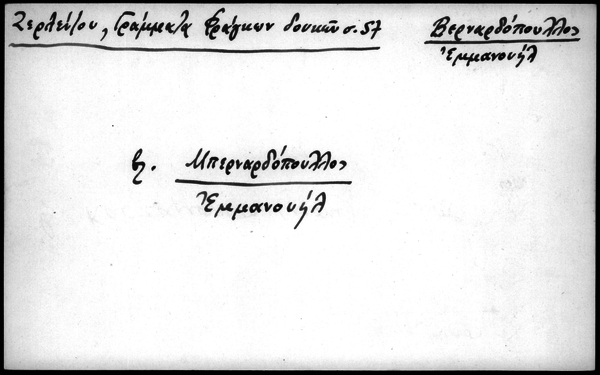 Ζερλέντου, Γράμματα Φράγκων δουκῶν σ. 57
Βερναρδόπουλλος
Ἐμμανουήλ
βλ. Μπερναρδόπουλλος
Ἐμμανουήλ